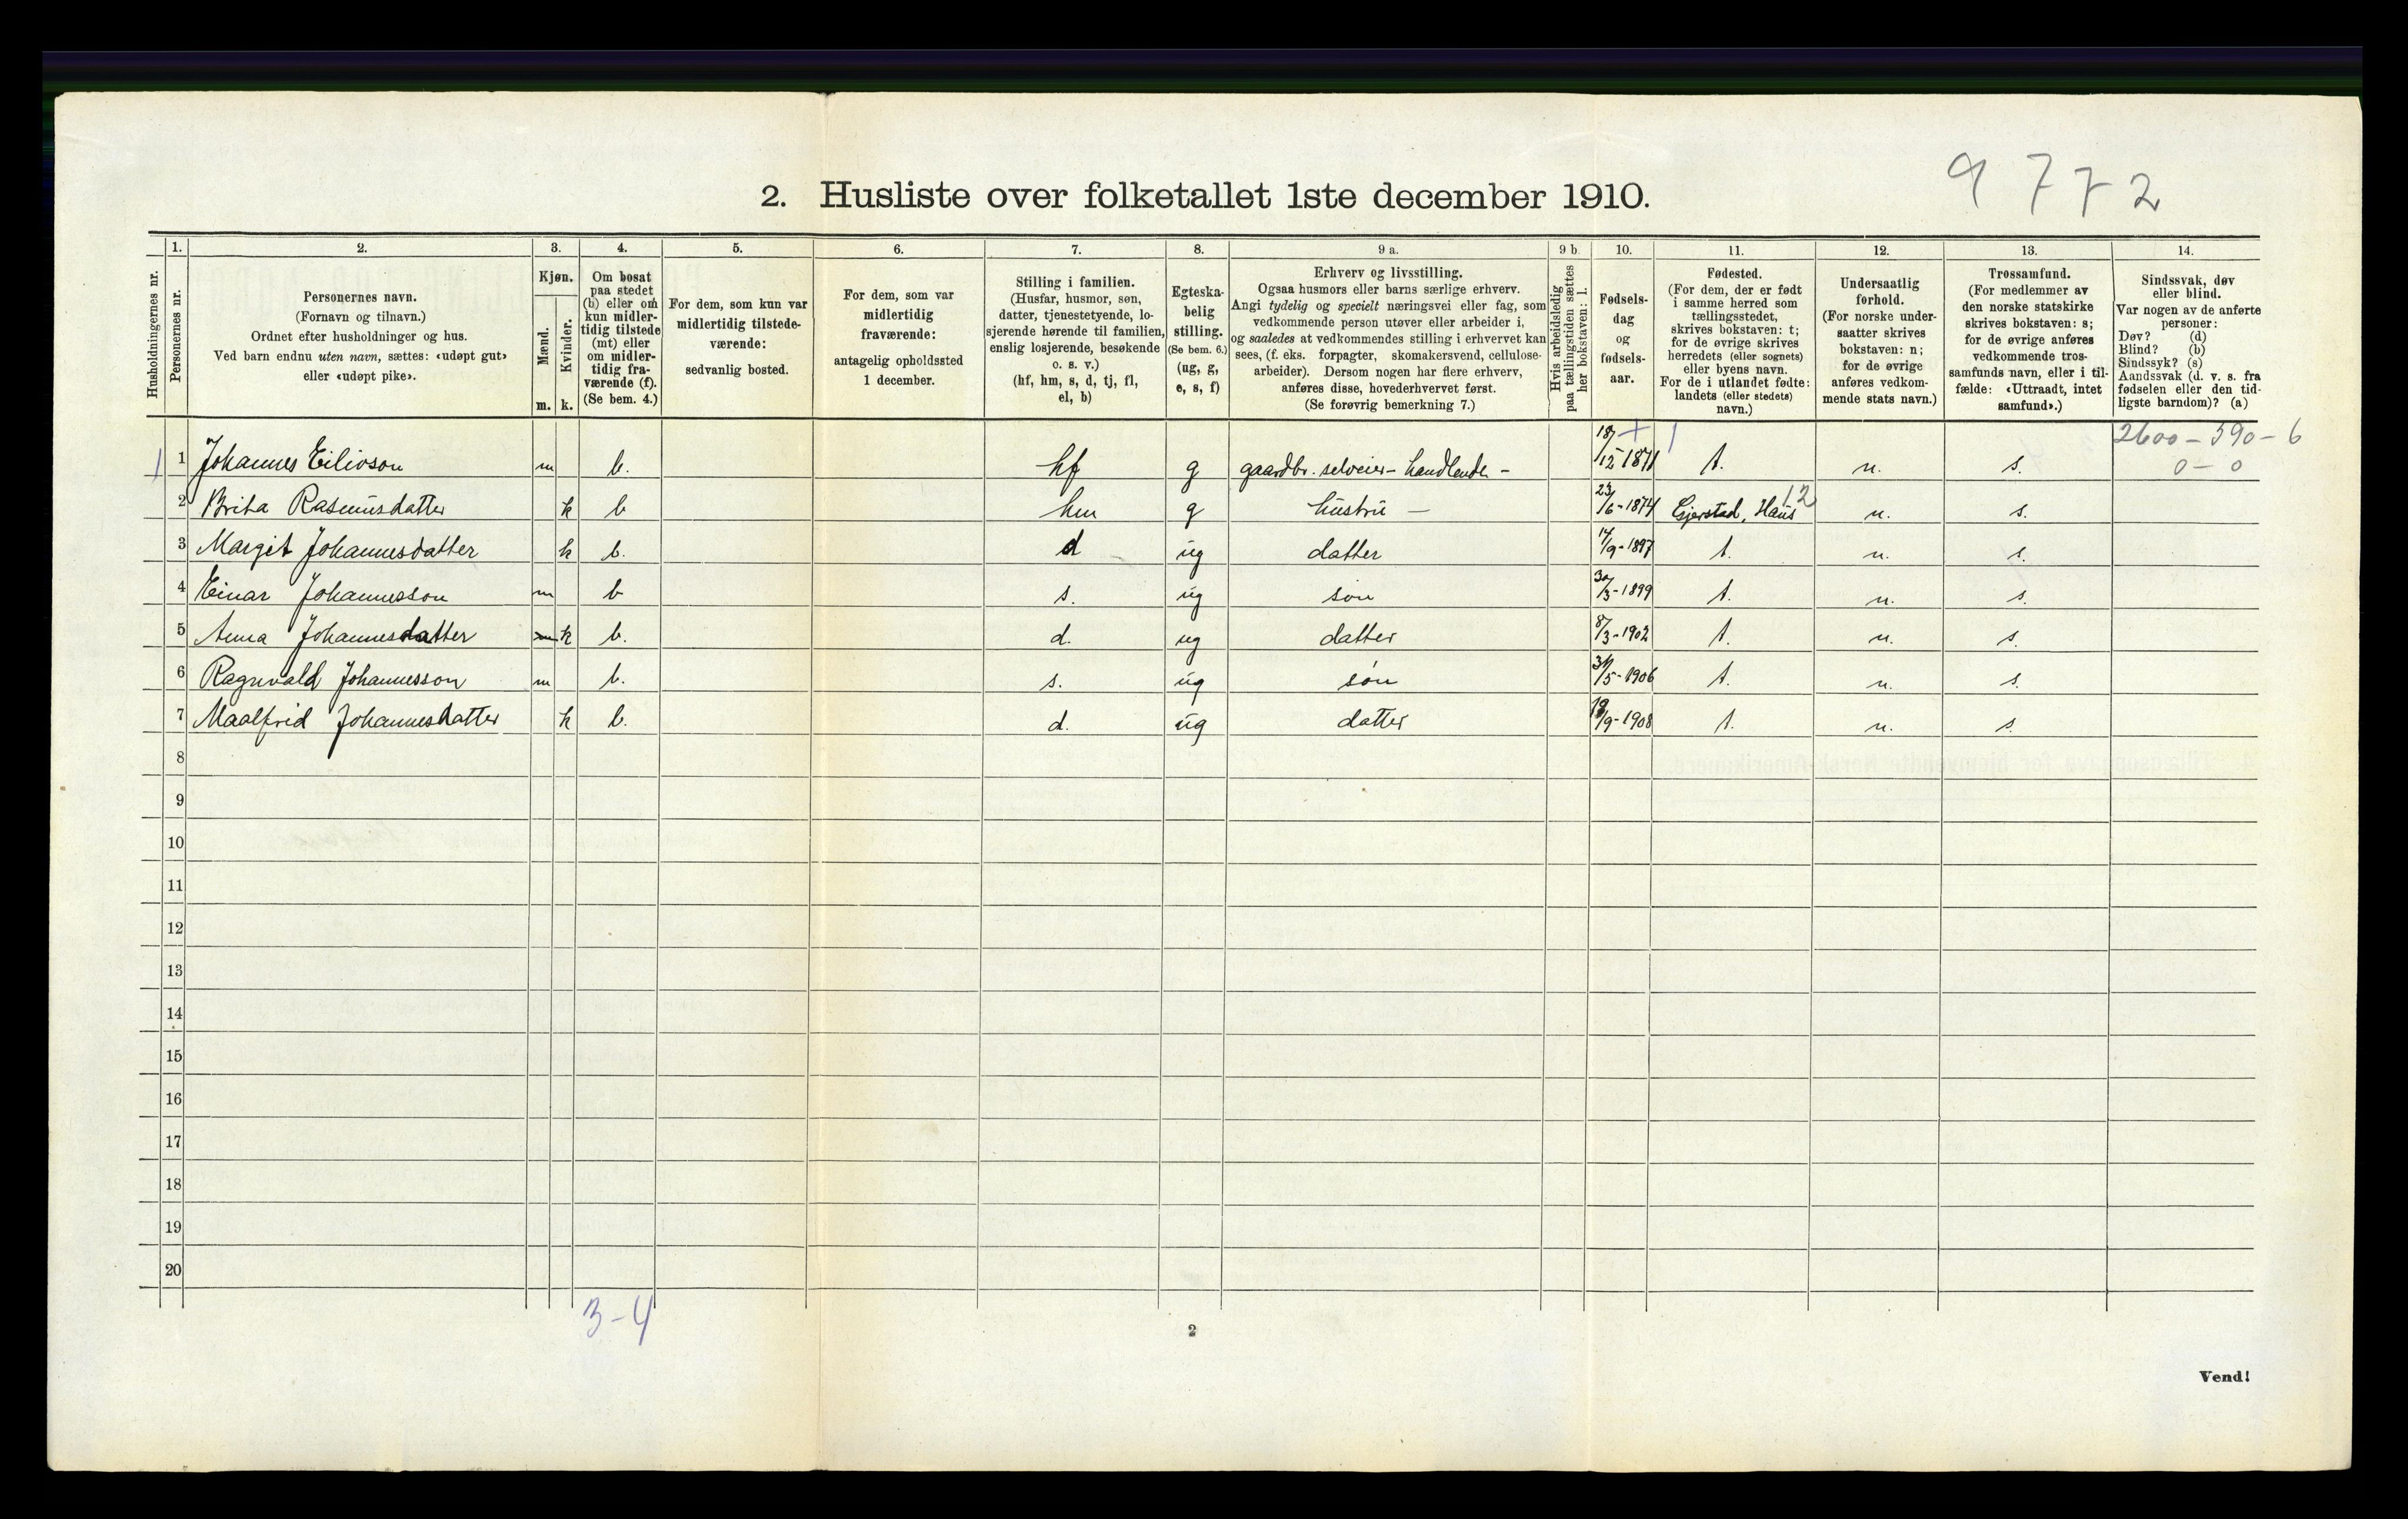 9 7 7 2
2. Husliste over folketallet 1ste december 1910.
Husholdningernes nr.
1.
Personernes nr.
2.
Personernes navn.
(Fornavn og tilnavn.)
Ordnet efter husholdninger og hus.
Ved barn endnu uten navn, sættes: «udøpt gut»
eller «udøpt pike».
3.
Kjøn.
Mænd.
Kvinder.
m. k.
4.
Om bosat
paa stedet
(b) eller om
kun midler-
tidig tilstede
(mt) eller
om midler-
tidig fra-
værende (f).
(Se bem. 4.)
5.
For dem, som kun var
midlertidig tilstede-
værende:
sedvanlig bosted.
6.
For dem, som var
midlertidig
fraværende:
antagelig opholdssted
1 december.
7.
Stilling i familien.
(Husfar, husmor, søn,
datter, tjenestetyende, lo-
sjerende hørende til familien,
enslig losjerende, besøkende
o. s. v.)
(hf, hm, s, d, tj, fl,
el, b)
8.
Egteska-
belig
stilling.
(Se bem. 6.)
(ug, g,
e, s, f)
9 a.
Erhverv og livsstilling.
Ogsaa husmors eller barns særlige erhverv.
Angi tydelig og specielt næringsvei eller fag, som
vedkommende person utøver eller arbeider i,
og saaledes at vedkommendes stilling i erhvervet kan
sees, (f. eks. forpagter, skomakersvend, cellulose-
arbeider). Dersom nogen har flere erhverv,
anføres disse, hovederhvervet først.
(Se forøvrig bemerkning 7.)
9 b.
Hvis arbeidsledig
paa tællingstiden sættes
her bokstaven: l.
10.
Fødsels-
dag
og
fødsels-
aar.
11.
Fødested.
(For dem, der er født
i samme herred som
tællingsstedet,
skrives bokstaven: t;
for de øvrige skrives
herredets (eller sognets)
eller byens navn.
For de i utlandet fødte:
landets (eller stedets)
navn.)
12.
Undersaatlig
forhold.
(For norske under-
saatter skrives
bokstaven: n;
for de øvrige
anføres vedkom-
mende stats navn.)
13.
Trossamfund.
(For medlemmer av
den norske statskirke
skrives bokstaven: s;
for de øvrige anføres
vedkommende tros-
samfunds navn, eller i til-
fælde: «Uttraadt, intet
samfund».)
14.
Sindssvak, døv
eller blind.
Var nogen av de anførte
personer:
Døv? (d)
Blind? (b)
Sindssyk? (s)
Aandssvak (d. v. s. fra
fødselen eller den tid-
ligste barndom)? (a)
2600 - 390 - 6
0 - 0
1 1 Johannes Eilivson m b. hf g gaardbr. selveier - handlende - 18/12-1871 t. n. s.
2 Brita Rasmusdatter k b hm g hustru - 23/6-1874 Gjerstad, Haus 12 n. s.
3 Margit Johannesdatter k b. d ug datter 14/9-1897 t. n. s.
4 Einar Johannesson m b s. ug søn 30/3-1899 t. n. s.
5 Anna Johannesdatter m k b. d. ug datter 8/3-1902 t. n. s.
6 Ragnvald Johannesson m b. s. ug søn 31/5-1906 t. n. s.
7 Maalfrid Johannesdatter k b. d. ug datter /9-1908 t. n. s.
8
9
10
11
12
13
14
15
16
17
18
19
20
3-4
2
Vend!